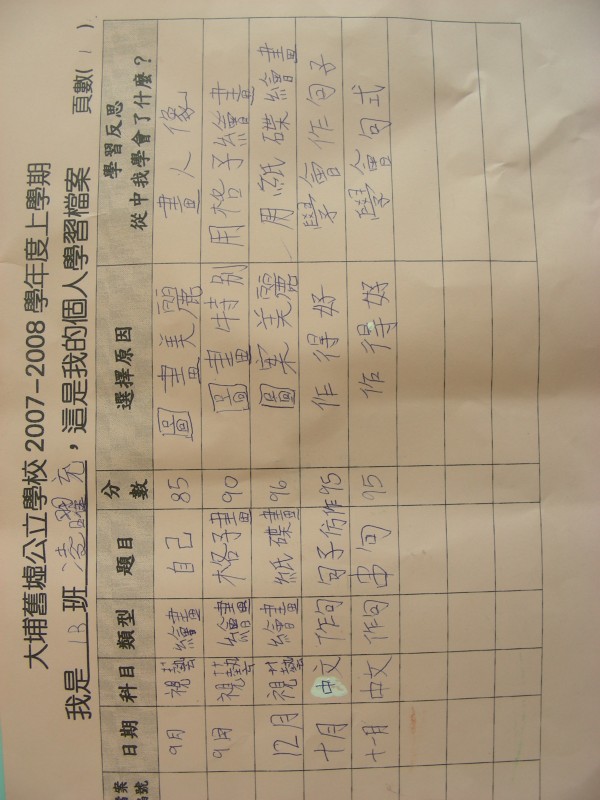 大埔舊墟公立學校 2007-2008 學年度上學期
我是 1B 班 凌躍充，這是我的個人學習檔案 頁數( 1 )
日期 科目 類型 題目 分數 選擇原因 學習反思 從中我學會了什麼？
9月 視藝 繪畫 自己 85 圖畫美麗 畫人像
9月 視藝 繪畫 格子畫 90 圖畫特別 用格子繪畫
12月 視藝 繪畫 紙碟畫 96 圖案美麗 用紙碟繪畫
十月 中文 作句 句子仿作 95 作得好 學會作句子
十一月 中文 作句 串句 95 作得好 學會句式